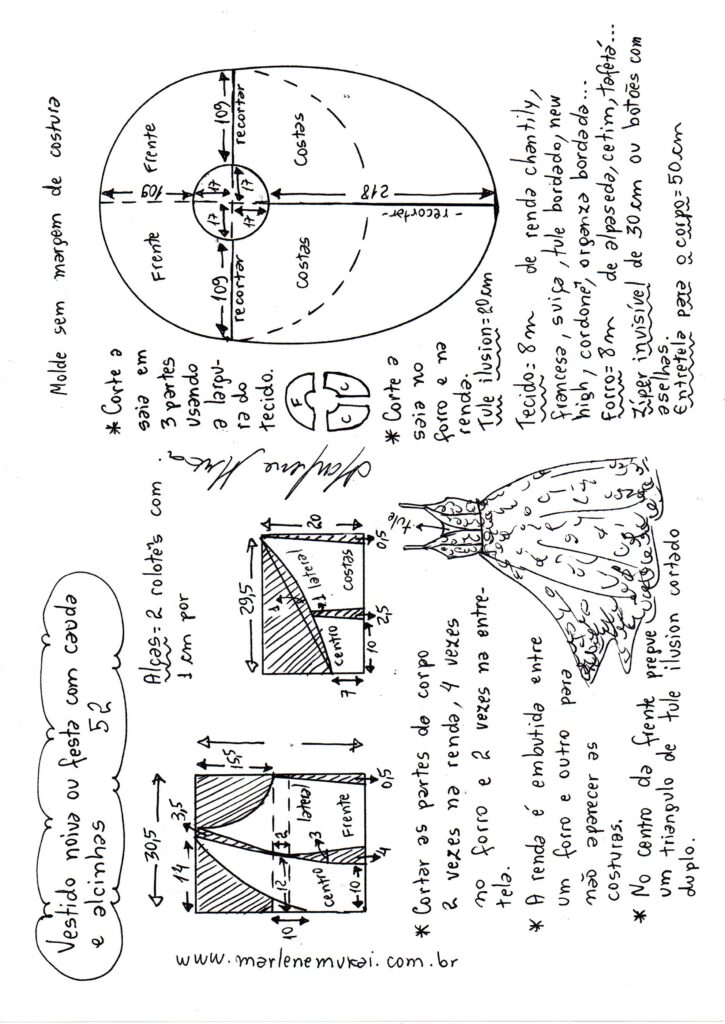 Vestido noiva ou festa com cauda
e alcinhas 52
30,5
14
3,5
15,5
12
2
10
3
centro
lateral
Frente
10
4
0,5
www.marlenemukai.com.br
Alças= 2 rolotês com
1 cm por
29,5
20
1
1
lateral
centro
costas
7
10
2,5
0,5
* Cortar as partes do corpo
2 vezes na renda, 4 vezes
no forro e 2 vezes na entre-
tela.
* A renda é embutida entre
um forro e outro para
não aparecer as
costuras.
* No centro da frente pregue
um triangulo de tule ilusion cortado
duplo.
tule
Molde sem margem de costura
* Corte a
saia em
3 partes
usando
a largu-
ra do
tecido.
F
C
C
* Corte a
saia no
forro e na
renda.
Tule ilusion=20cm
Frente
Frente
109
109
109
17
17
17
17
recortar
recortar
Costas
Costas
218
-recortar-
Tecido= 8m de renda chantily,
francesa, suiça, tule bordado, new
high, cordonê, organza bordada...
Forro= 8m de alpaseda, cetim, tafetá...
Ziper invisível de 30 cm ou botões com
aselhas.
Entretela para o corpo=50cm